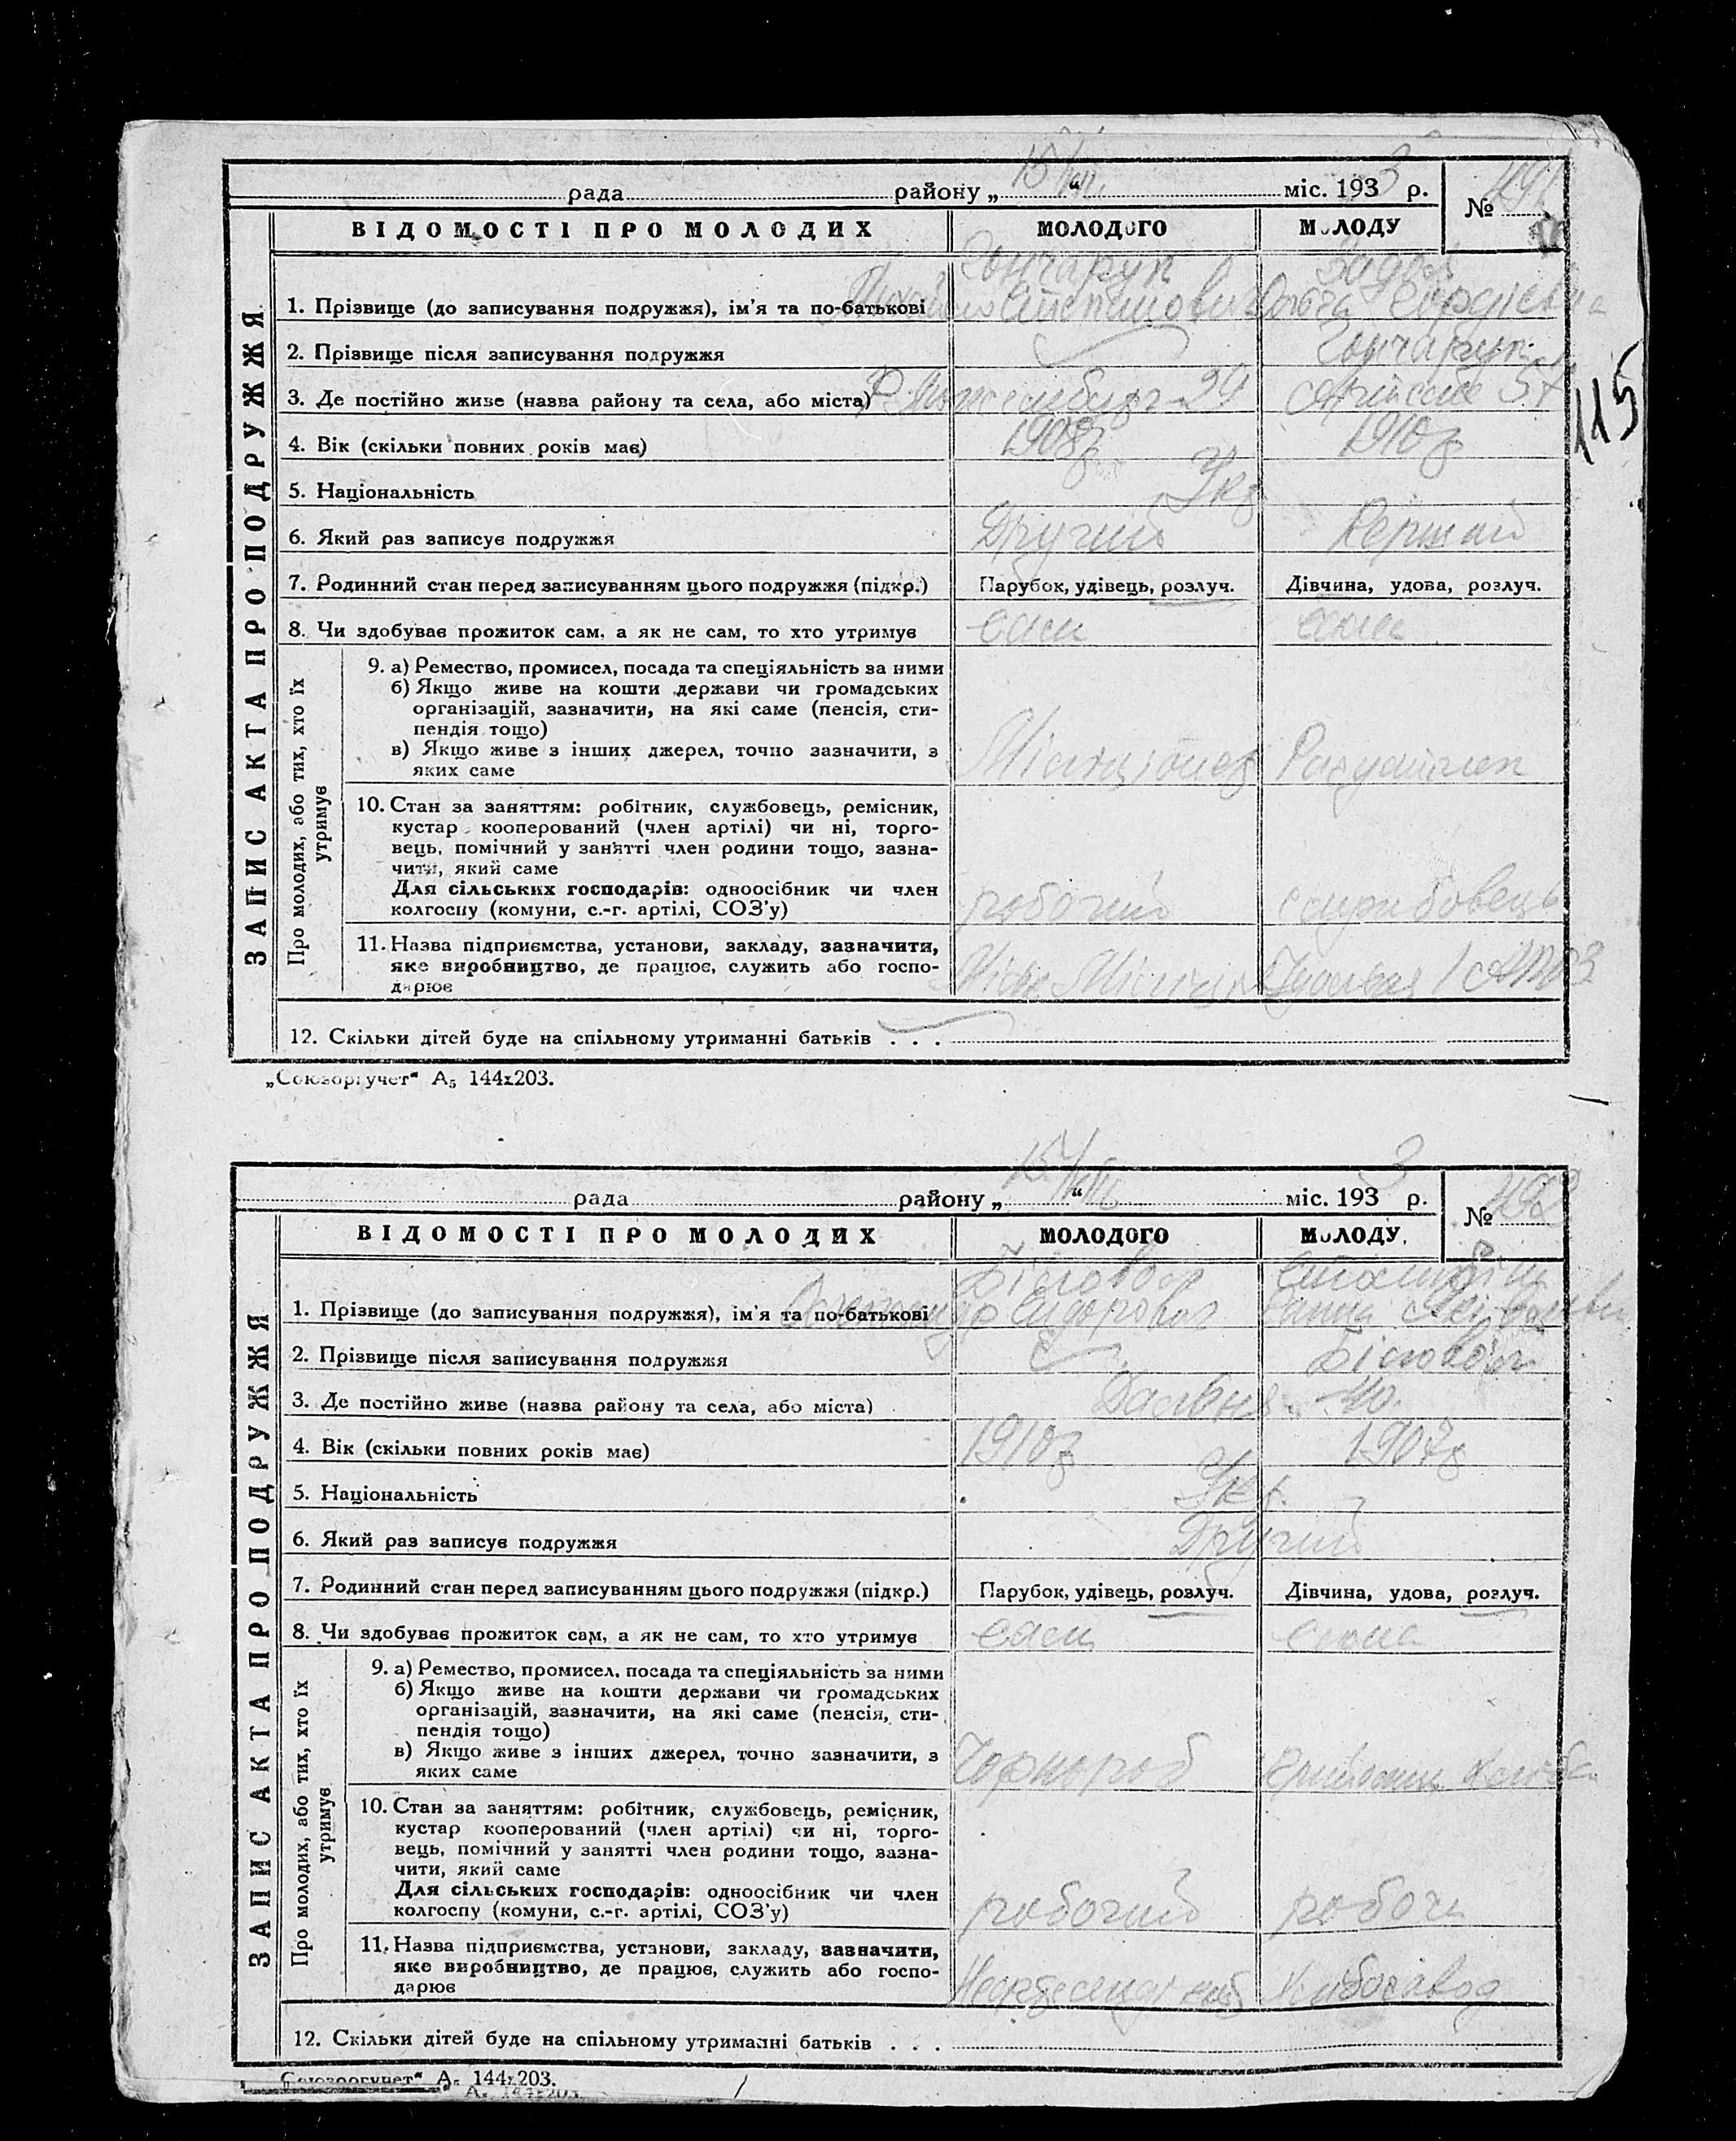 рада района „15/VII“ міс. 1933 р.
№ 491
ВІДОМОСТІ ПРО МОЛОДИХ МОЛОДОГО МОЛОДУ
ЗАПИС АКТА ПРО ПОДРУЖЖЯ
Гончарук
1. Прізвище (до записування подружжя), ім'я та по-батькові Михайло Степанович Ольга Сергієвна
2. Прізвище після записування подружжя Гончарук
3. Де постійно живе (назва району та села, або міста) Р. Люксембург 29 57
4. Вік (скільки повних років має) 1908р 1910р
5. Національність Укр
6. Який раз записує подружжя Другий Перший
7. Родинний стан перед записуванням цього подружжя (підкр.) Парубок, удівець, розлуч. Дівчина, удова, розлуч.
8. Чи здобуває прожиток сам, а як не сам, то хто утримує сам сама
Про молодих, або тих, хто їх утримує
9. а) Ремество, промисел, посада та спеціяльність за ними
б) Якщо живе на кошти держави чи громадських
організацій, зазначити, на які саме (пенсія, сти-
пендія тощо)
в) Якщо живе з інших джерел, точно зазначити, з
яких саме Міліціонер
10. Стан за заняттям: робітник, службовець, ремісник,
кустар кооперований (член артілі) чи ні, торго-
вець, помічний у занятті член родини тощо, зазна-
чити, який саме
Для сільських господарів: одноосібник чи член
колгоспу (комуни, с.-г. артілі, СОЗ'у) робочий службовець
11. Назва підприємства, установи, закладу, зазначити,
яке виробництво, де працює, служить або госпо-
дарює
12. Скільки дітей буде на спільному утриманні батьків . . .
„Союзоргучет“ А₅ 144х203.
115
рада району „15/VII“ міс. 1933 р.
№ 492
ВІДОМОСТІ ПРО МОЛОДИХ МОЛОДОГО МОЛОДУ
ЗАПИС АКТА ПРО ПОДРУЖЖЯ
1. Прізвище (до записування подружжя), ім'я та по-батькові Сидорович Ганна
2. Прізвище після записування подружжя
3. Де постійно живе (назва району та села, або міста) Дальня 40.
4. Вік (скільки повних років має) 1910р 1907р
5. Національність Укр.
6. Який раз записує подружжя Другий
7. Родинний стан перед записуванням цього подружжя (підкр.) Парубок, удівець, розлуч. Дівчина, удова, розлуч.
8. Чи здобуває прожиток сам, а як не сам, то хто утримує сам сама
Про молодих, або тих, хто їх утримує
9. а) Ремество, промисел, посада та спеціяльність за ними
б) Якщо живе на кошти держави чи громадських
організацій, зазначити, на які саме (пенсія, сти-
пендія тощо)
в) Якщо живе з інших джерел, точно зазначити, з
яких саме Чорнороб
10. Стан за заняттям: робітник, службовець, ремісник,
кустар кооперований (член артілі) чи ні, торго-
вець, помічний у занятті член родини тощо, зазна-
чити, який саме
Для сільських господарів: одноосібник чи член
колгоспу (комуни, с.-г. артілі, СОЗ'у) робочий робоча
11. Назва підприємства, установи, закладу, зазначити,
яке виробництво, де працює, служить або госпо-
дарює Хлібозавод
12. Скільки дітей буде на спільному утриманні батьків . . .
„Союзоргучет“ А₅ 144х203.